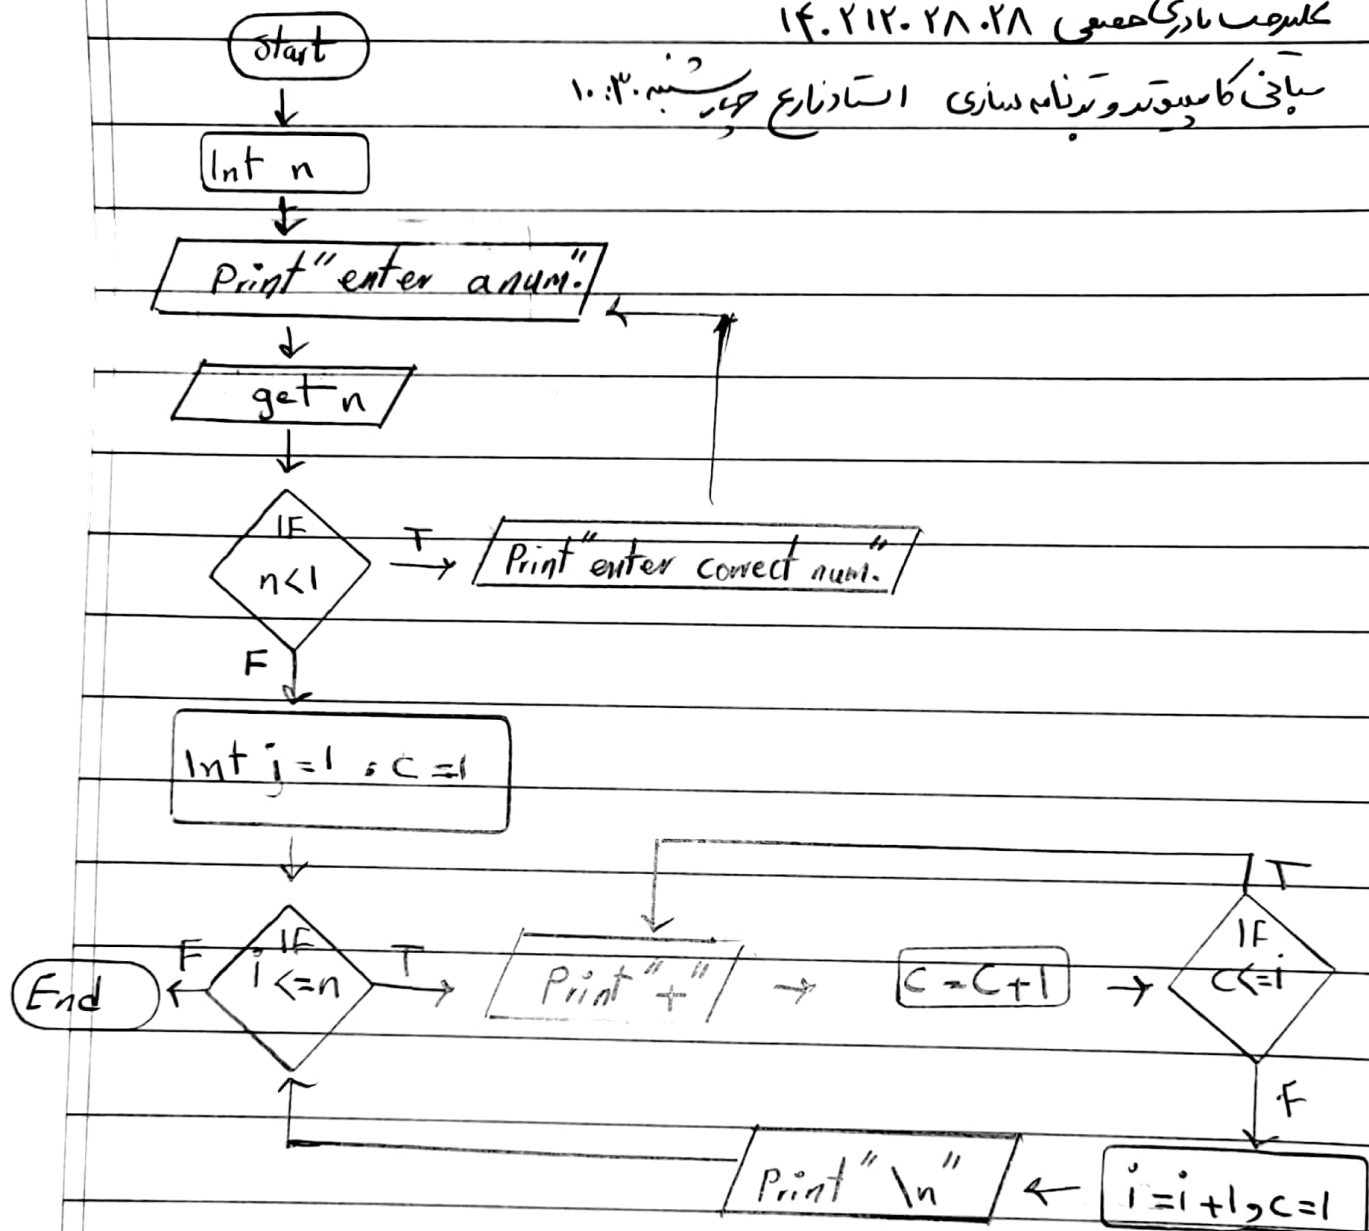 ۱۴۰۲۱۲۰۲۸۰۲۸
مبانی کامپیوتر و برنامه سازی استاد زارع چهارشنبه ۱۰:۳۰
Start
Int n
Print "enter a num."
get n
IF
n<1
T
Print "enter correct num."
F
Int j=1 , c=1
IF
i<=n
F
End
T
Print "+"
c=c+1
IF
c<=i
T
F
i=i+1, c=1
Print "\n"